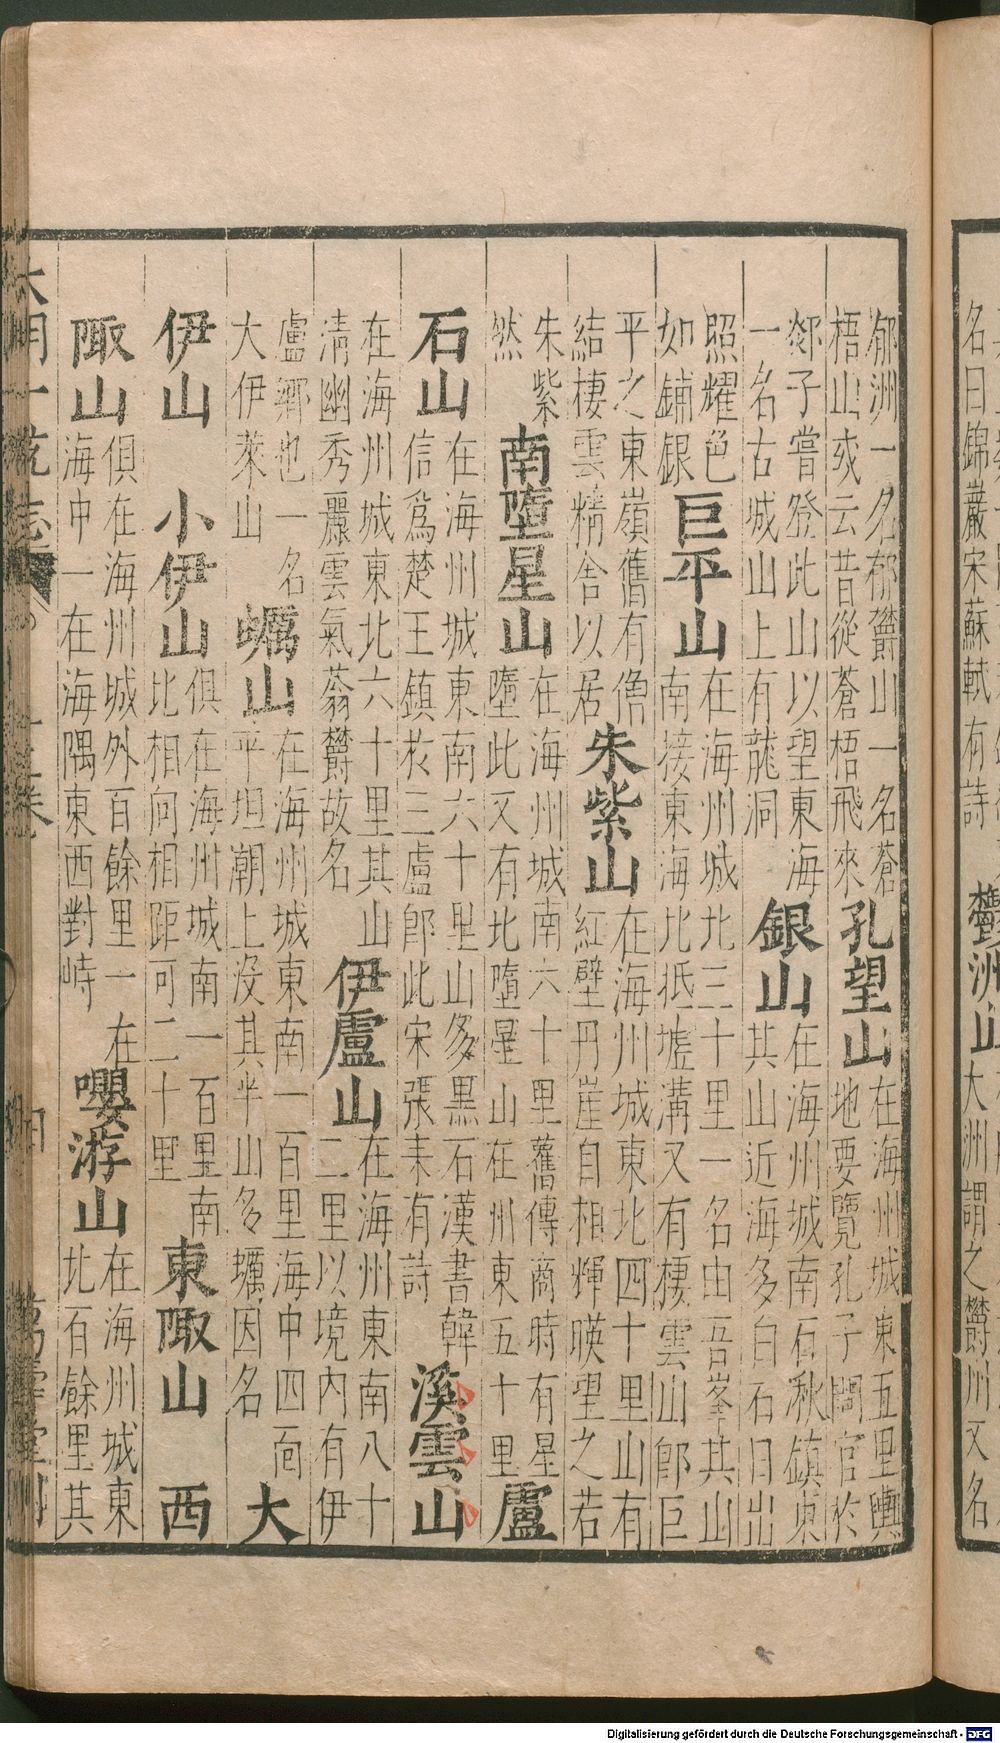 名曰錦巖宋蘇軾有詩
鬱洲山
大洲謂之鬱州又名
郁洲一名郁鬱山一名蒼
梧山或云昔從蒼梧飛來
孔望山
在海州城東五里輿
地要覽孔子問官於
郯子嘗登此山以望東海
一名古城山上有龍洞
銀山
在海州城南石湫鎮東
其山近海多白石日出
照耀色
如鋪銀
巨平山
在海州城北三十里一名由吾峯其山
南接東海北抵墟溝又有棲雲山即巨
平之東嶺舊有僧
結棲雲精舍以居
朱紫山
在海州城東北四十里山有
紅壁丹崖自相輝暎望之若
朱紫
然
南墮星山
在海州城南六十里舊傳商時有星
墮此又有北墮星山在州東五十里
盧
石山
在海州城東南六十里山多黑石漢書韓
信爲楚王鎮於三盧即此宋張耒有詩
溪雲山
在海州城東北六十里其山
清幽秀麗雲氣蓊鬱故名
伊盧山
在海州東南八十
二里以境內有伊
盧鄉也一名
大伊萊山
蠣山
在海州城東南一百里海中四面
平坦潮上沒其半山多蠣因名
大
伊山
小伊山
俱在海州城南一百里南
北相向相距可二十里
東陬山
西
陬山
俱在海州城外百餘里一在
海中一在海隅東西對峙
嚶游山
在海州城東
北百餘里其
大明一統志
四
萬壽堂刊
Digitalisierung gefördert durch die Deutsche Forschungsgemeinschaft - DFG